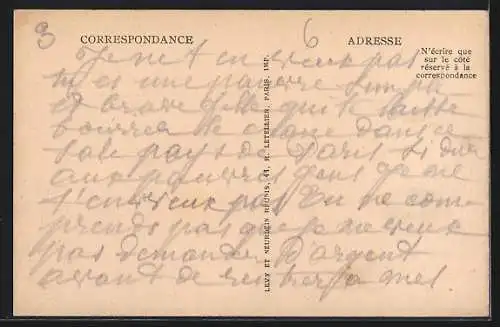 3
6
CORRESPONDANCE
ADRESSE
N'écrire que
sur le côté
réservé à la
correspondance
Je ne t'en veux pas
tu es une pauvre simple
et brave fille qui te laisse
bourrer le crane dans ce
sale pays de Paris si dur
aux pauvres gens je ne
t'en veux pas tu ne com
prends pas que je ne veux
pas demander d'argent
avant de
LEVY ET NEURDEIN RÉUNIS, 44, R. LETELLIER, PARIS, IMP.